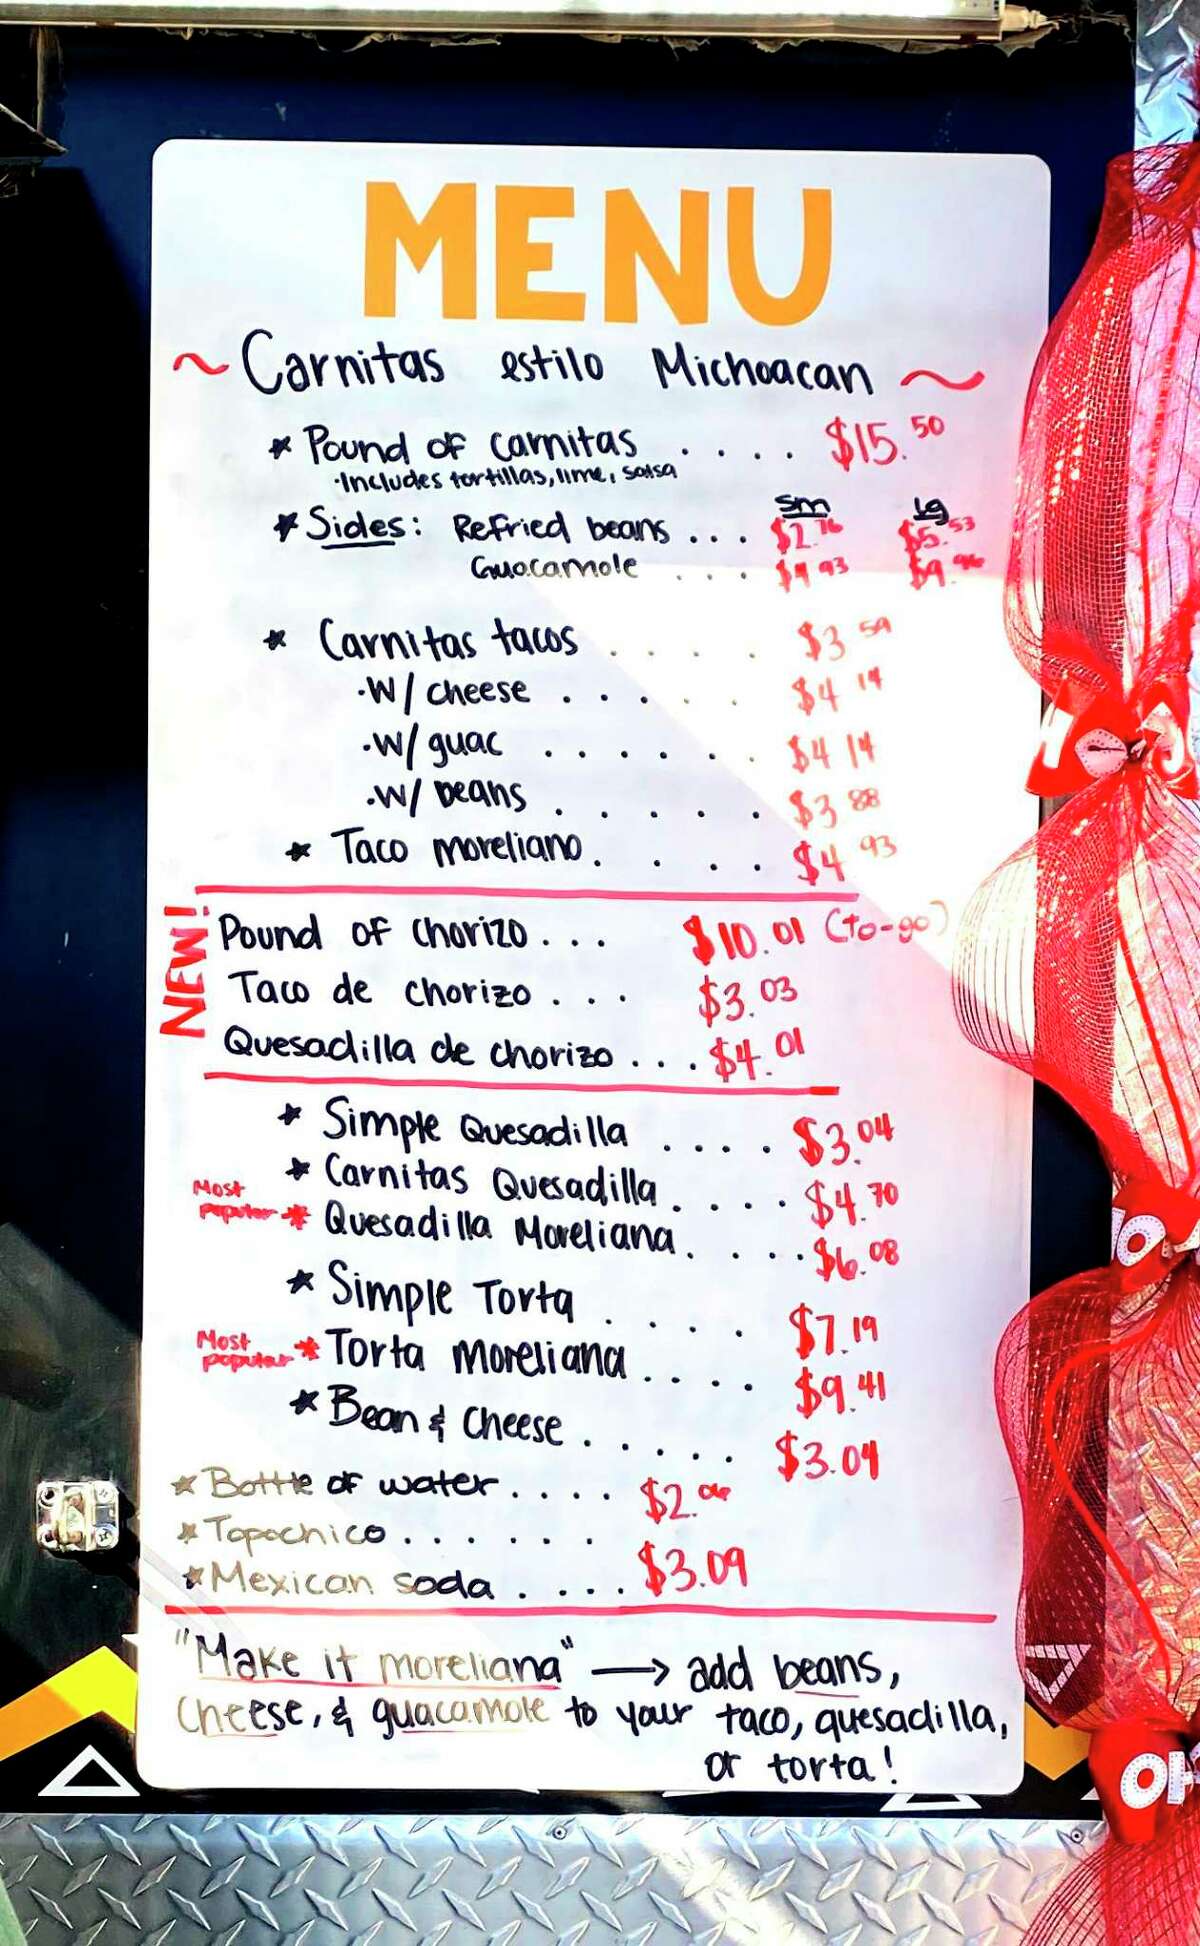 MENU
~ Carnitas estilo Michoacan ~
* Pound of carnitas . . . . $15.50
·Includes tortillas, lime, salsa
sm lg
* Sides: Refried beans . . . $2.76 $5.53
Guacamole . . . $4.93 $9.96
* Carnitas tacos . . . . $3.59
·W/ cheese . . . . . $4.14
·W/ guac . . . . . . $4.14
·W/ beans . . . . . $3.88
* Taco moreliano . . . . $4.93
NEW!
Pound of chorizo . . . $10.01 (to-go)
Taco de chorizo . . . $3.03
Quesadilla de chorizo . . . $4.01
* Simple Quesadilla . . . . $3.04
* Carnitas Quesadilla . . . . $4.70
Most popular * Quesadilla Moreliana . . . . $6.08
* Simple Torta . . . . $7.19
Most popular * Torta moreliana . . . . $9.41
* Bean & Cheese . . . . . $3.04
* Bottle of water . . . . $2.06
* Topochico . . . . . .
* Mexican soda . . . . $3.09
"Make it moreliana" → add beans,
cheese, & guacamole to your taco, quesadilla,
or torta!